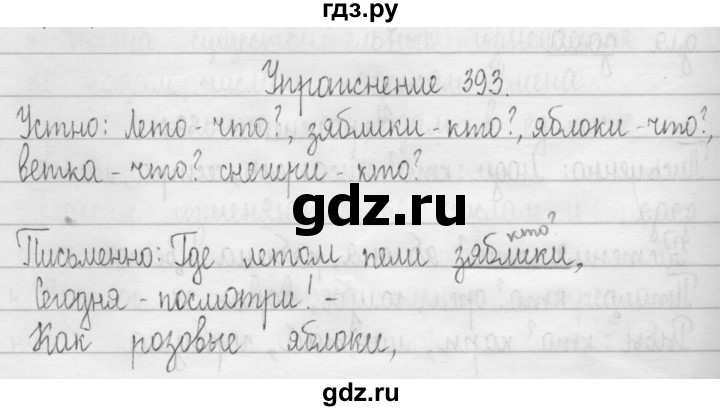 гдз.ру
Упражнение 393.
Устно: Лето - что?, зяблики - кто?, яблоки - что?,
ветка - что? снегири - кто?
gdz.ru
кто?
Письменно: Где летом пели зяблики,
Сегодня - посмотри! -
Как розовые яблоки,
gdz.ru